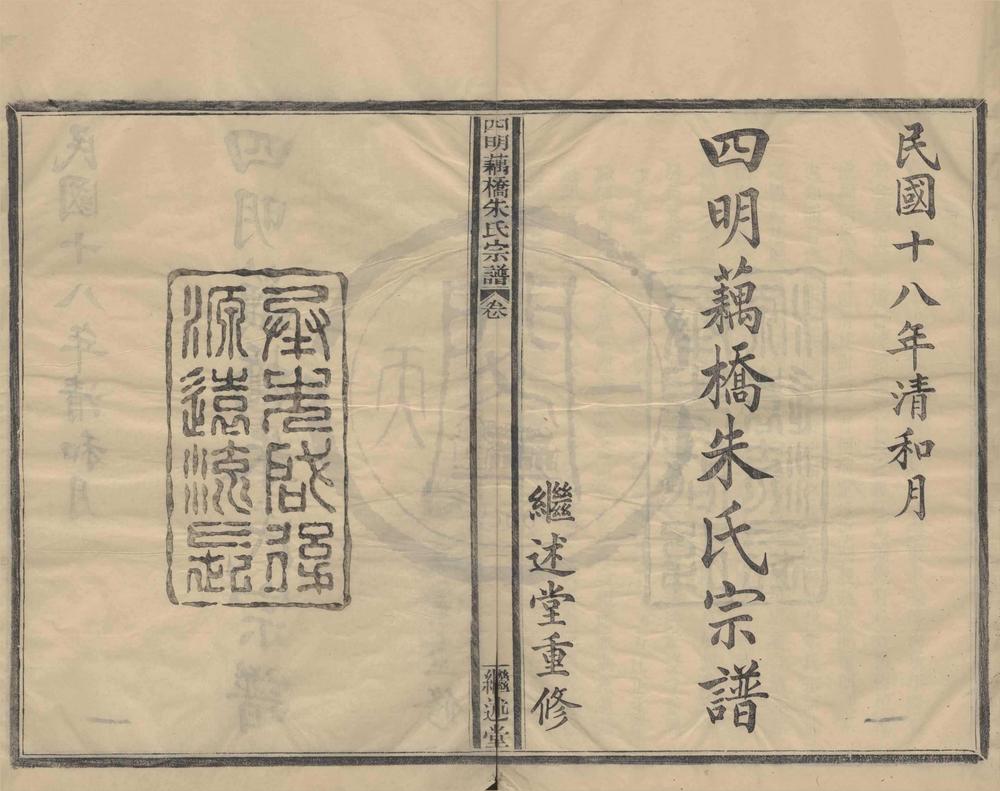 民國十八年清和月
四明藕橋朱氏宗譜
繼述堂重修
四明藕橋朱氏宗譜
卷
繼述堂
承先啟後
源遠流長